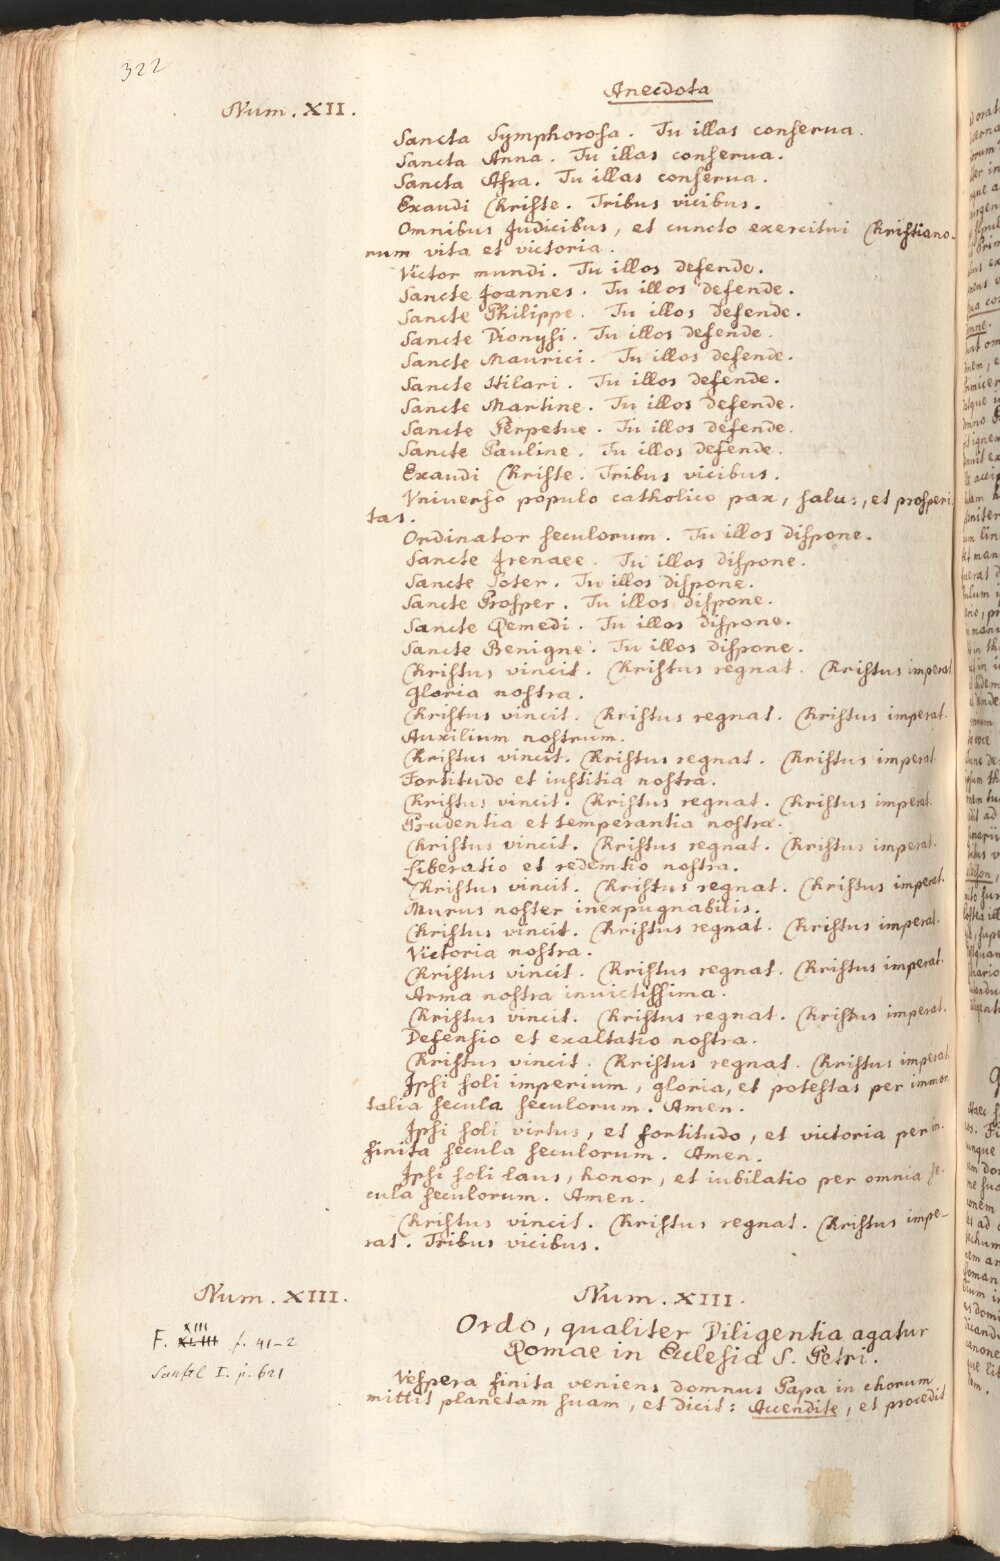 322
Anecdota
Num. XII.
Sancta Symphorosa. Tu illas conserua.
Sancta Anna. Tu illas conserua.
Sancta Afra. Tu illas conserua.
Exaudi Christe. Tribus vicibus.
Omnibus Judicibus, et cuncto exercitui Christiano-
rum vita et victoria.
Victor mundi. Tu illos defende.
Sancte Joannes. Tu illos defende.
Sancte Philippe. Tu illos defende.
Sancte Dionysi. Tu illos defende.
Sancte Maurici. Tu illos defende.
Sancte Hilari. Tu illos defende.
Sancte Martine. Tu illos defende.
Sancte Perpetue. Tu illos defende.
Sancte Pauline. Tu illos defende.
Exaudi Christe. Tribus vicibus.
Vniuerso populo catholico pax, salus, et prosperi
tas.
Ordinator seculorum. Tu illos dispone.
Sancte Irenaee. Tu illos dispone.
Sancte Soter. Tu illos dispone.
Sancte Prosper. Tu illos dispone.
Sancte Remedi. Tu illos dispone.
Sancte Benigne. Tu illos dispone.
Christus vincit. Christus regnat. Christus imperat
Gloria nostra.
Christus vincit. Christus regnat. Christus imperat.
Auxilium nostrum.
Christus vincit. Christus regnat. Christus imperat.
Fortitudo et iustitia nostra.
Christus vincit. Christus regnat. Christus imperat.
Prudentia et temperantia nostra.
Christus vincit. Christus regnat. Christus imperat.
Liberatio et redemtio nostra.
Christus vincit. Christus regnat. Christus imperat.
Murus noster inexpugnabilis.
Christus vincit. Christus regnat. Christus imperat.
Victoria nostra.
Christus vincit. Christus regnat. Christus imperat.
Arma nostra invictissima.
Christus vincit. Christus regnat. Christus imperat.
Defensio et exaltatio nostra.
Christus vincit. Christus regnat. Christus imperat
Ipsi soli imperium, gloria, et potestas per immor
talia secula seculorum. Amen.
Ipsi soli virtus, et fortitudo, et victoria per in-
finita secula seculorum. Amen.
Ipsi soli laus, honor, et iubilatio per omnia se-
cula seculorum. Amen.
Christus vincit. Christus regnat. Christus impe-
rat. Tribus vicibus.
Num. XIII.
Num. XIII.
XIII
F. XLIII f. 41-2
I. p. 621
Ordo, qualiter Diligentia agatur
Romae in Eclesia S. Petri.
Vespera finita veniens domnus Papa in chorum
mittit planetam suam, et dicit: Accendite, et procedit